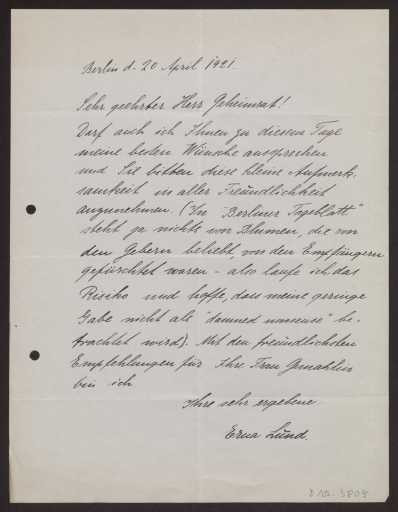 Berlin d. 20 April 1921.
Sehr geehrter Herr Geheimrat!
Darf auch ich Ihnen zu diesem Tage
meine besten Wünsche aussprechen
und Sie bitten diese kleine Aufmerk-
samkeit in aller Freundlichkeit
anzunehmen. (Im "Berliner Tageblatt"
steht ja nichts von Blumen, die von
den Gebern beliebt, von den Empfängern
gefürchtet waren - also laufe ich das
Risiko und hoffe, dass meine geringe
Gabe nicht als "damned nonsense" be-
trachtet wird). Mit den freundlichsten
Empfehlungen für Ihre Frau Gemahlin
bin ich
Ihre sehr ergebene
Erna Lund.